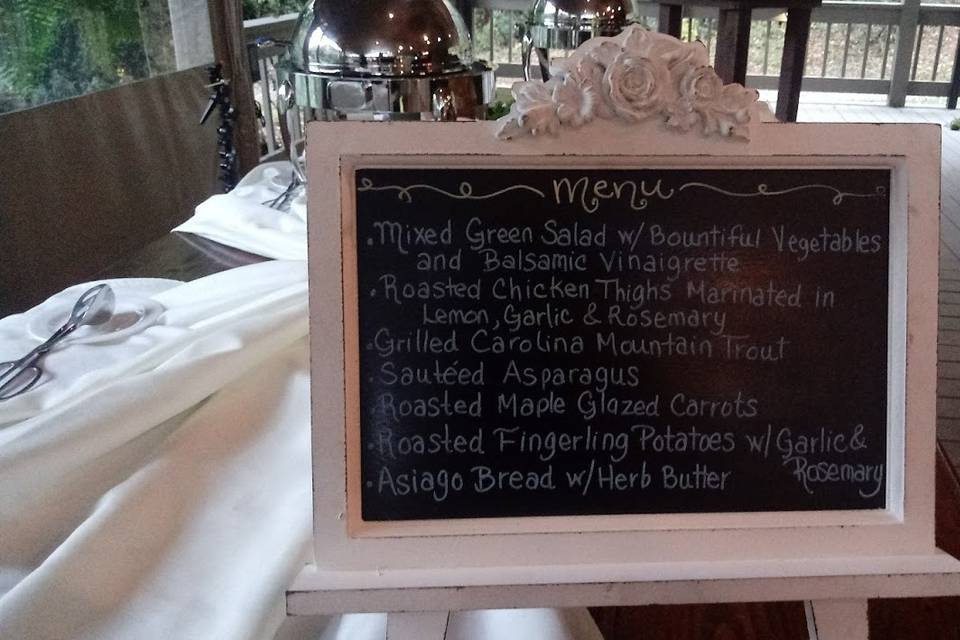 Menu
• Mixed Green Salad w/ Bountiful Vegetables
and Balsamic Vinaigrette
• Roasted Chicken Thighs Marinated in
Lemon, Garlic & Rosemary
• Grilled Carolina Mountain Trout
• Sautéed Asparagus
• Roasted Maple Glazed Carrots
• Roasted Fingerling Potatoes w/ Garlic &
Rosemary
• Asiago Bread w/ Herb Butter